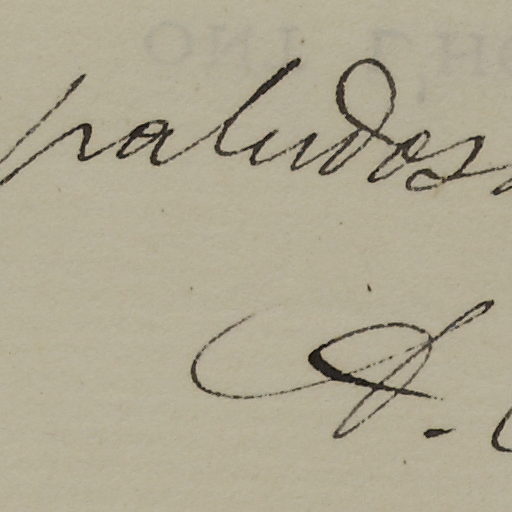 paludos
A.